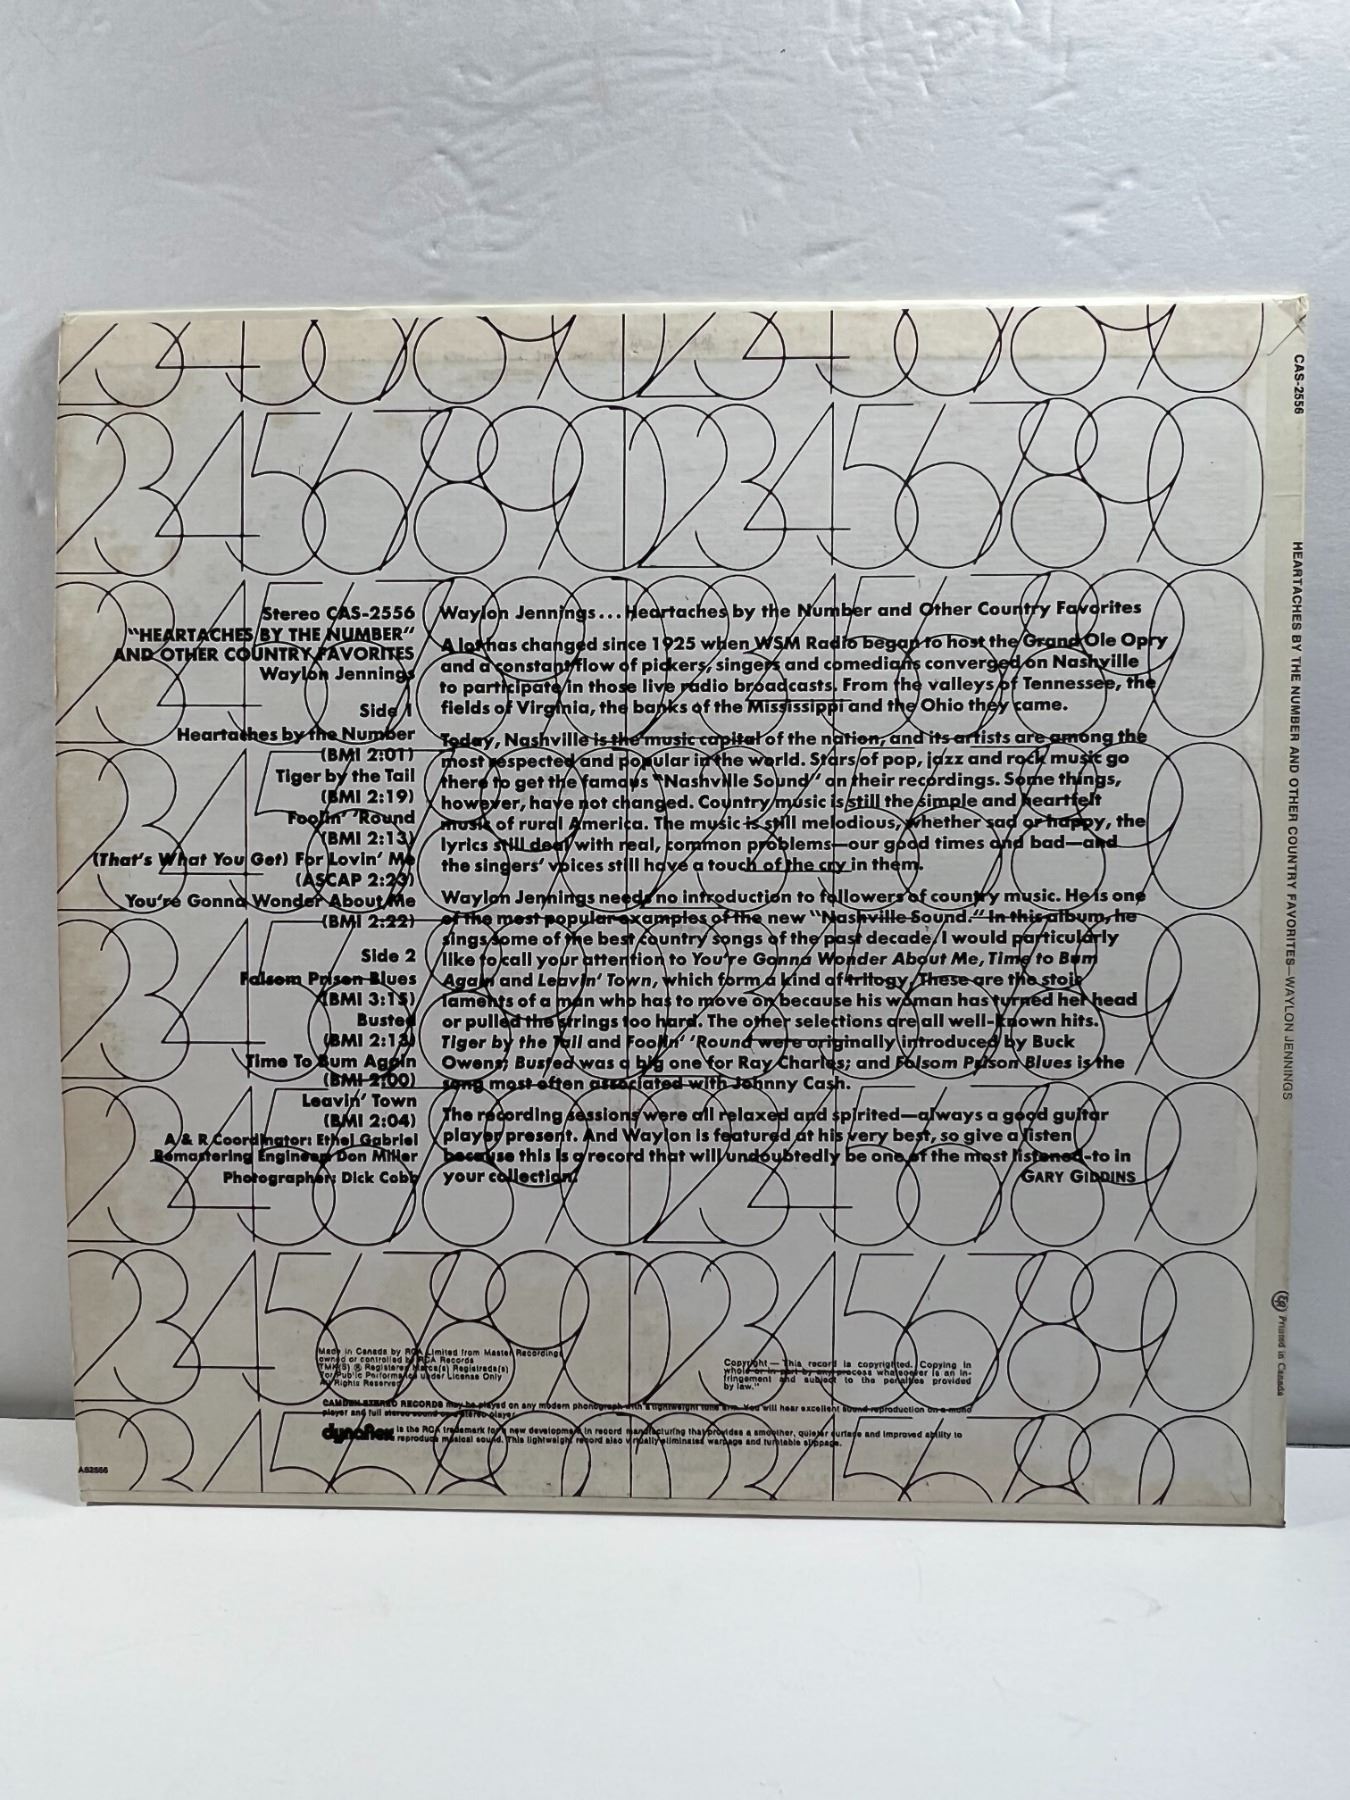 Stereo CAS-2556
"HEARTACHES BY THE NUMBER"
AND OTHER COUNTRY FAVORITES
Waylon Jennings
Side 1
Heartaches by the Number
(BMI 2:01)
Tiger by the Tail
(BMI 2:19)
Foolin' 'Round
(BMI 2:13)
(That's What You Get) For Lovin' Me
(ASCAP 2:23)
You're Gonna Wonder About Me
(BMI 2:22)
Side 2
Folsom Prison Blues
(BMI 3:15)
Busted
(BMI 2:13)
Time To Bum Again
(BMI 2:00)
Leavin' Town
(BMI 2:04)
A & R Coordinator: Ethel Gabriel
Remastering Engineer: Don Miller
Photographer: Dick Cobb
Waylon Jennings...Heartaches by the Number and Other Country Favorites
A lot has changed since 1925 when WSM Radio began to host the Grand Ole Opry
and a constant flow of pickers, singers and comedians converged on Nashville
to participate in those live radio broadcasts. From the valleys of Tennessee, the
fields of Virginia, the banks of the Mississippi and the Ohio they came.
Today, Nashville is the music capital of the nation, and its artists are among the
most respected and popular in the world. Stars of pop, jazz and rock music go
there to get the famous "Nashville Sound" on their recordings. Some things,
however, have not changed. Country music is still the simple and heartfelt
music of rural America. The music is still melodious, whether sad or happy, the
lyrics still deal with real, common problems—our good times and bad—and
the singers' voices still have a touch of the cry in them.
Waylon Jennings needs no introduction to followers of country music. He is one
of the most popular examples of the new "Nashville Sound." In this album, he
sings some of the best country songs of the past decade. I would particularly
like to call your attention to You're Gonna Wonder About Me, Time to Bum
Again and Leavin' Town, which form a kind of trilogy. These are the stoic
laments of a man who has to move on because his woman has turned her head
or pulled the strings too hard. The other selections are all well-known hits.
Tiger by the Tail and Foolin' 'Round were originally introduced by Buck
Owens; Busted was a big one for Ray Charles; and Folsom Prison Blues is the
song most often associated with Johnny Cash.
The recording sessions were all relaxed and spirited—always a good guitar
player present. And Waylon is featured at his very best, so give a listen
because this is a record that will undoubtedly be one of the most listened-to in
your collection.
GARY GIDDINS
Made in Canada by RCA Limited from Master Recordings
owned or controlled by RCA Records
TMK(S) ® Registered Marca(s) Registrada(s)
For Public Performance under License Only
All Rights Reserved
Copyright — This record is copyrighted. Copying in
whole or in part by any process whatsoever is an in-
fringement and subject to the penalties provided
by law."
CAMDEN STEREO RECORDS may be played on any modern phonograph with a lightweight tone arm. You will hear excellent sound reproduction on a mono
player and full stereo sound on a stereo player.
dynaflex is the RCA trademark for a new development in record manufacturing that provides a smoother, quieter surface and improved ability to
reproduce musical sound. This lightweight record also virtually eliminates warpage and turntable slippage.
AS2556
CAS-2556
HEARTACHES BY THE NUMBER AND OTHER COUNTRY FAVORITES—WAYLON JENNINGS
Printed in Canada
234567890 1234567890